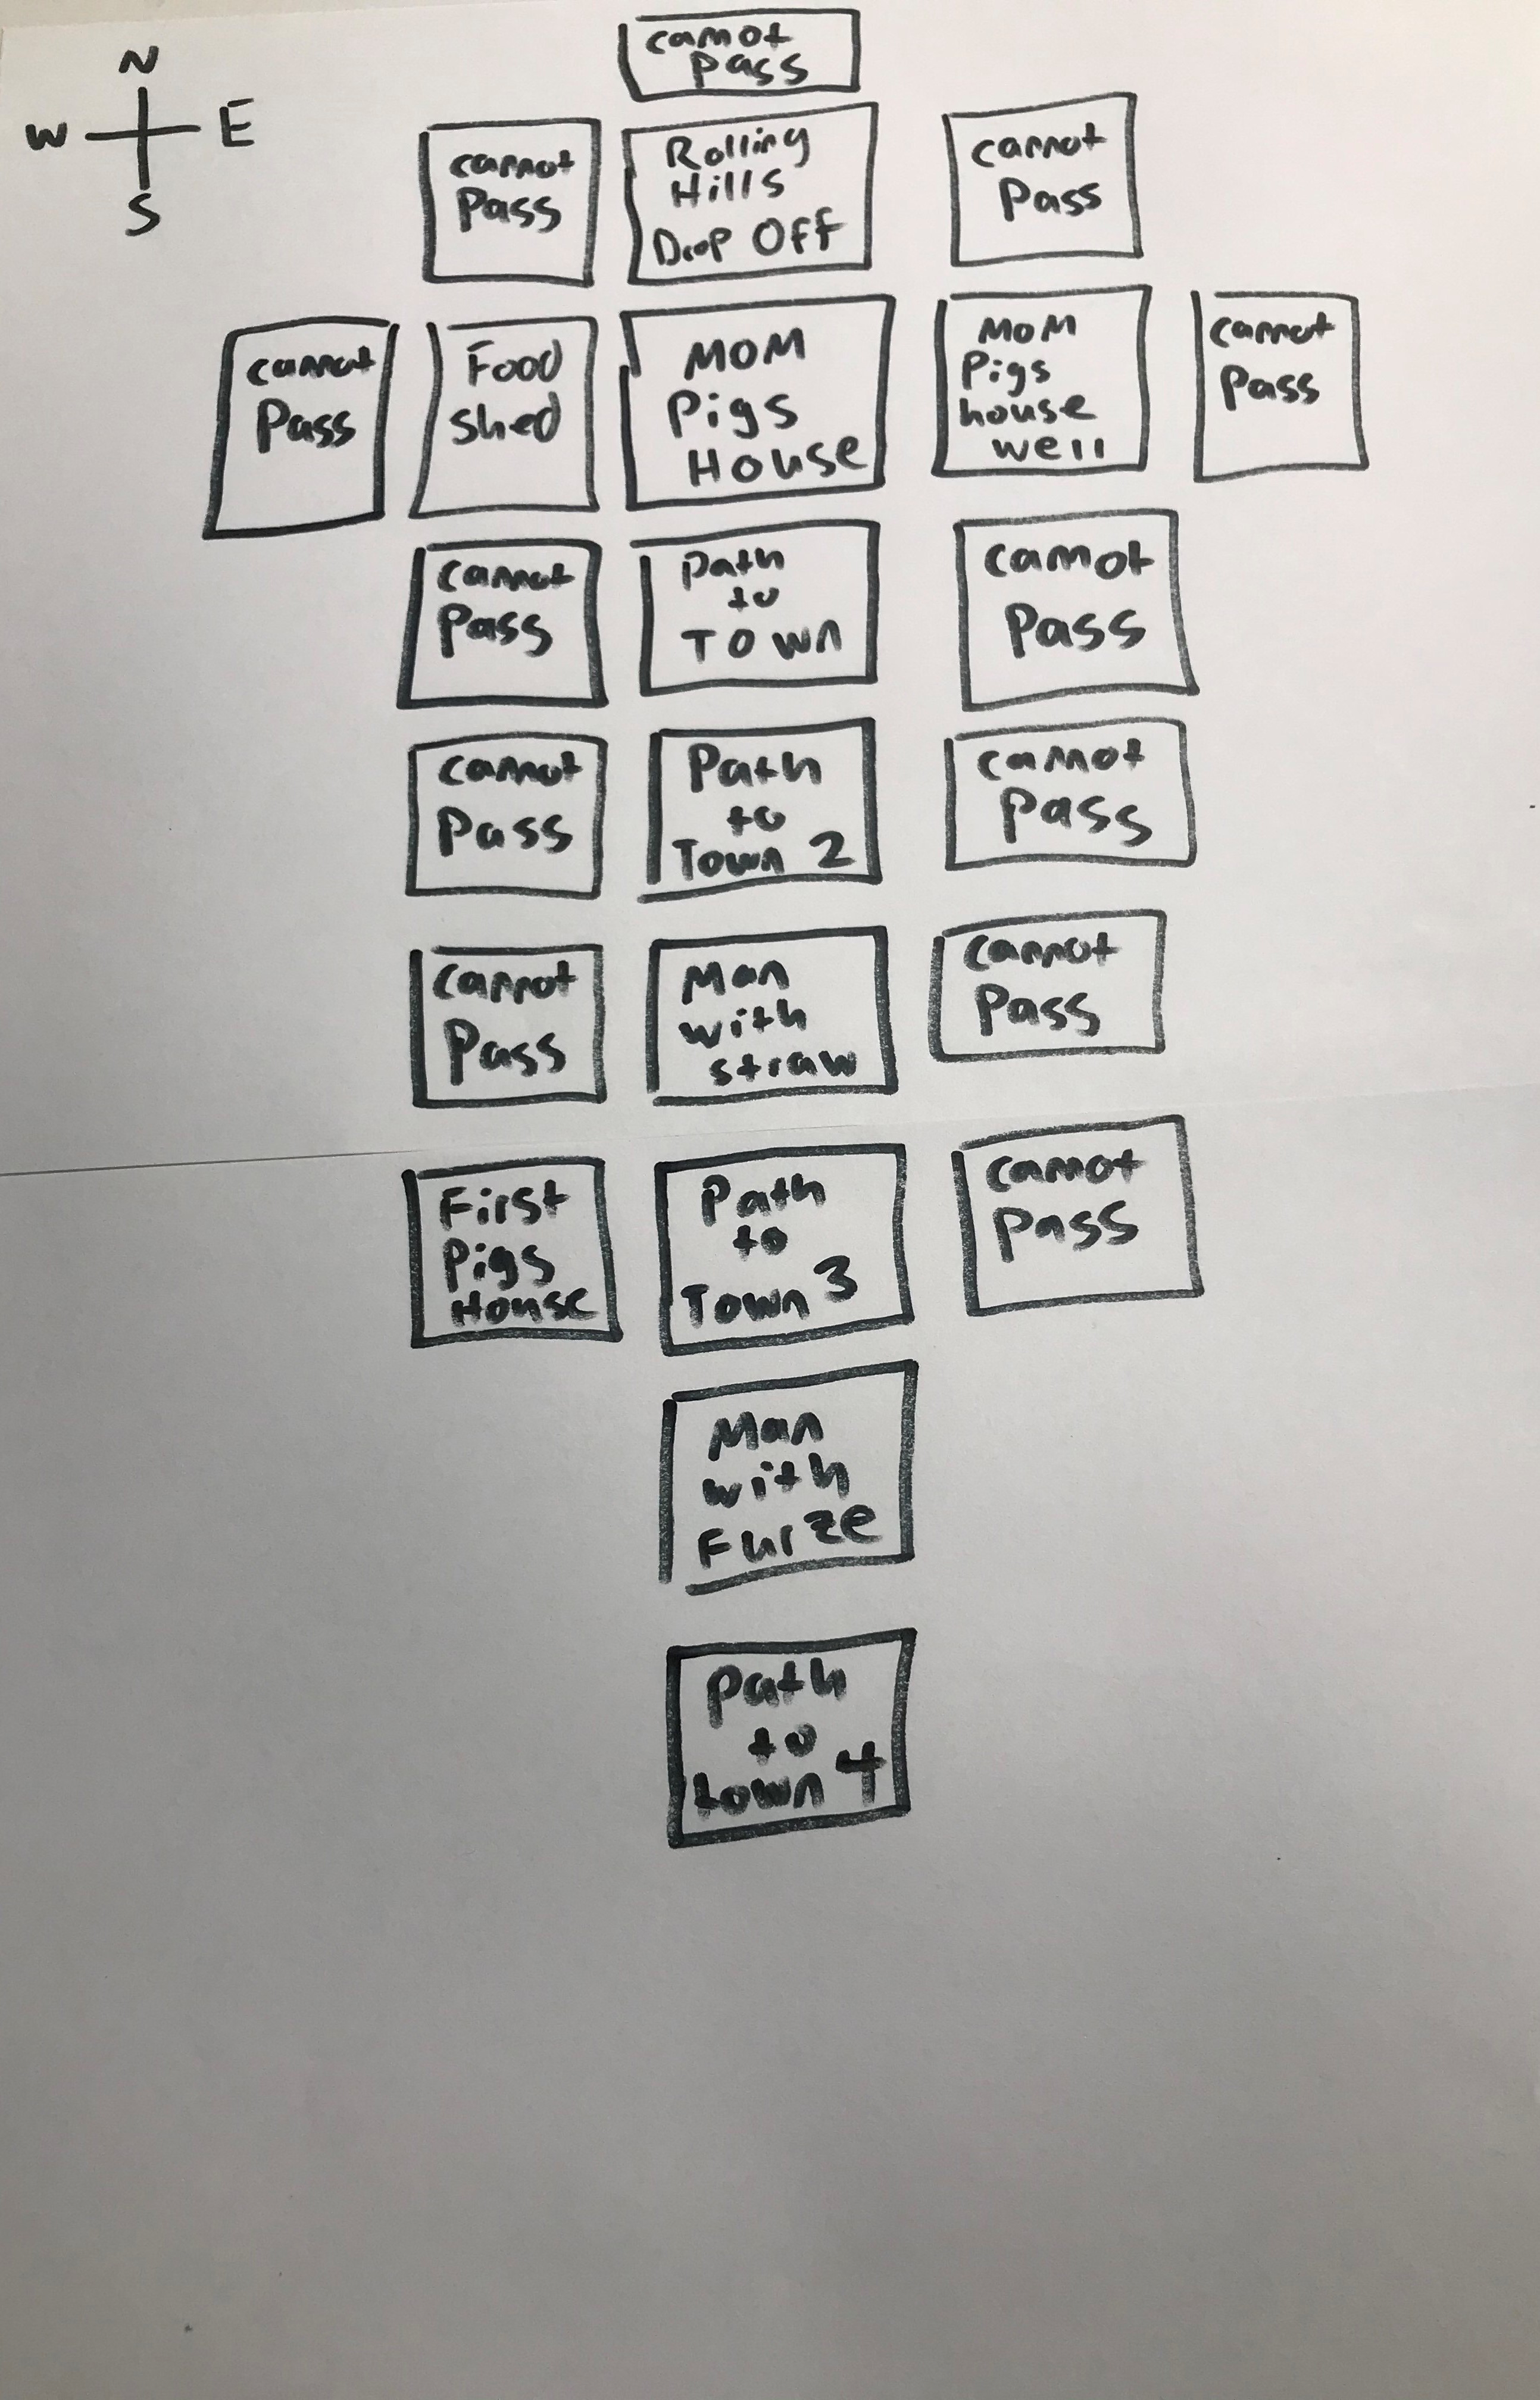 N
W E
S
cannot
pass
cannot
Pass
Rolling
Hills
Drop Off
cannot
Pass
cannot
Pass
Food
shed
MOM
Pigs
House
MOM
Pigs
house
well
cannot
Pass
cannot
Pass
path
to
TOWN
cannot
Pass
cannot
Pass
Path
to
Town 2
cannot
Pass
cannot
Pass
Man
with
straw
cannot
Pass
First
Pigs
House
Path
to
Town 3
cannot
Pass
Man
with
Furze
Path
to
town 4